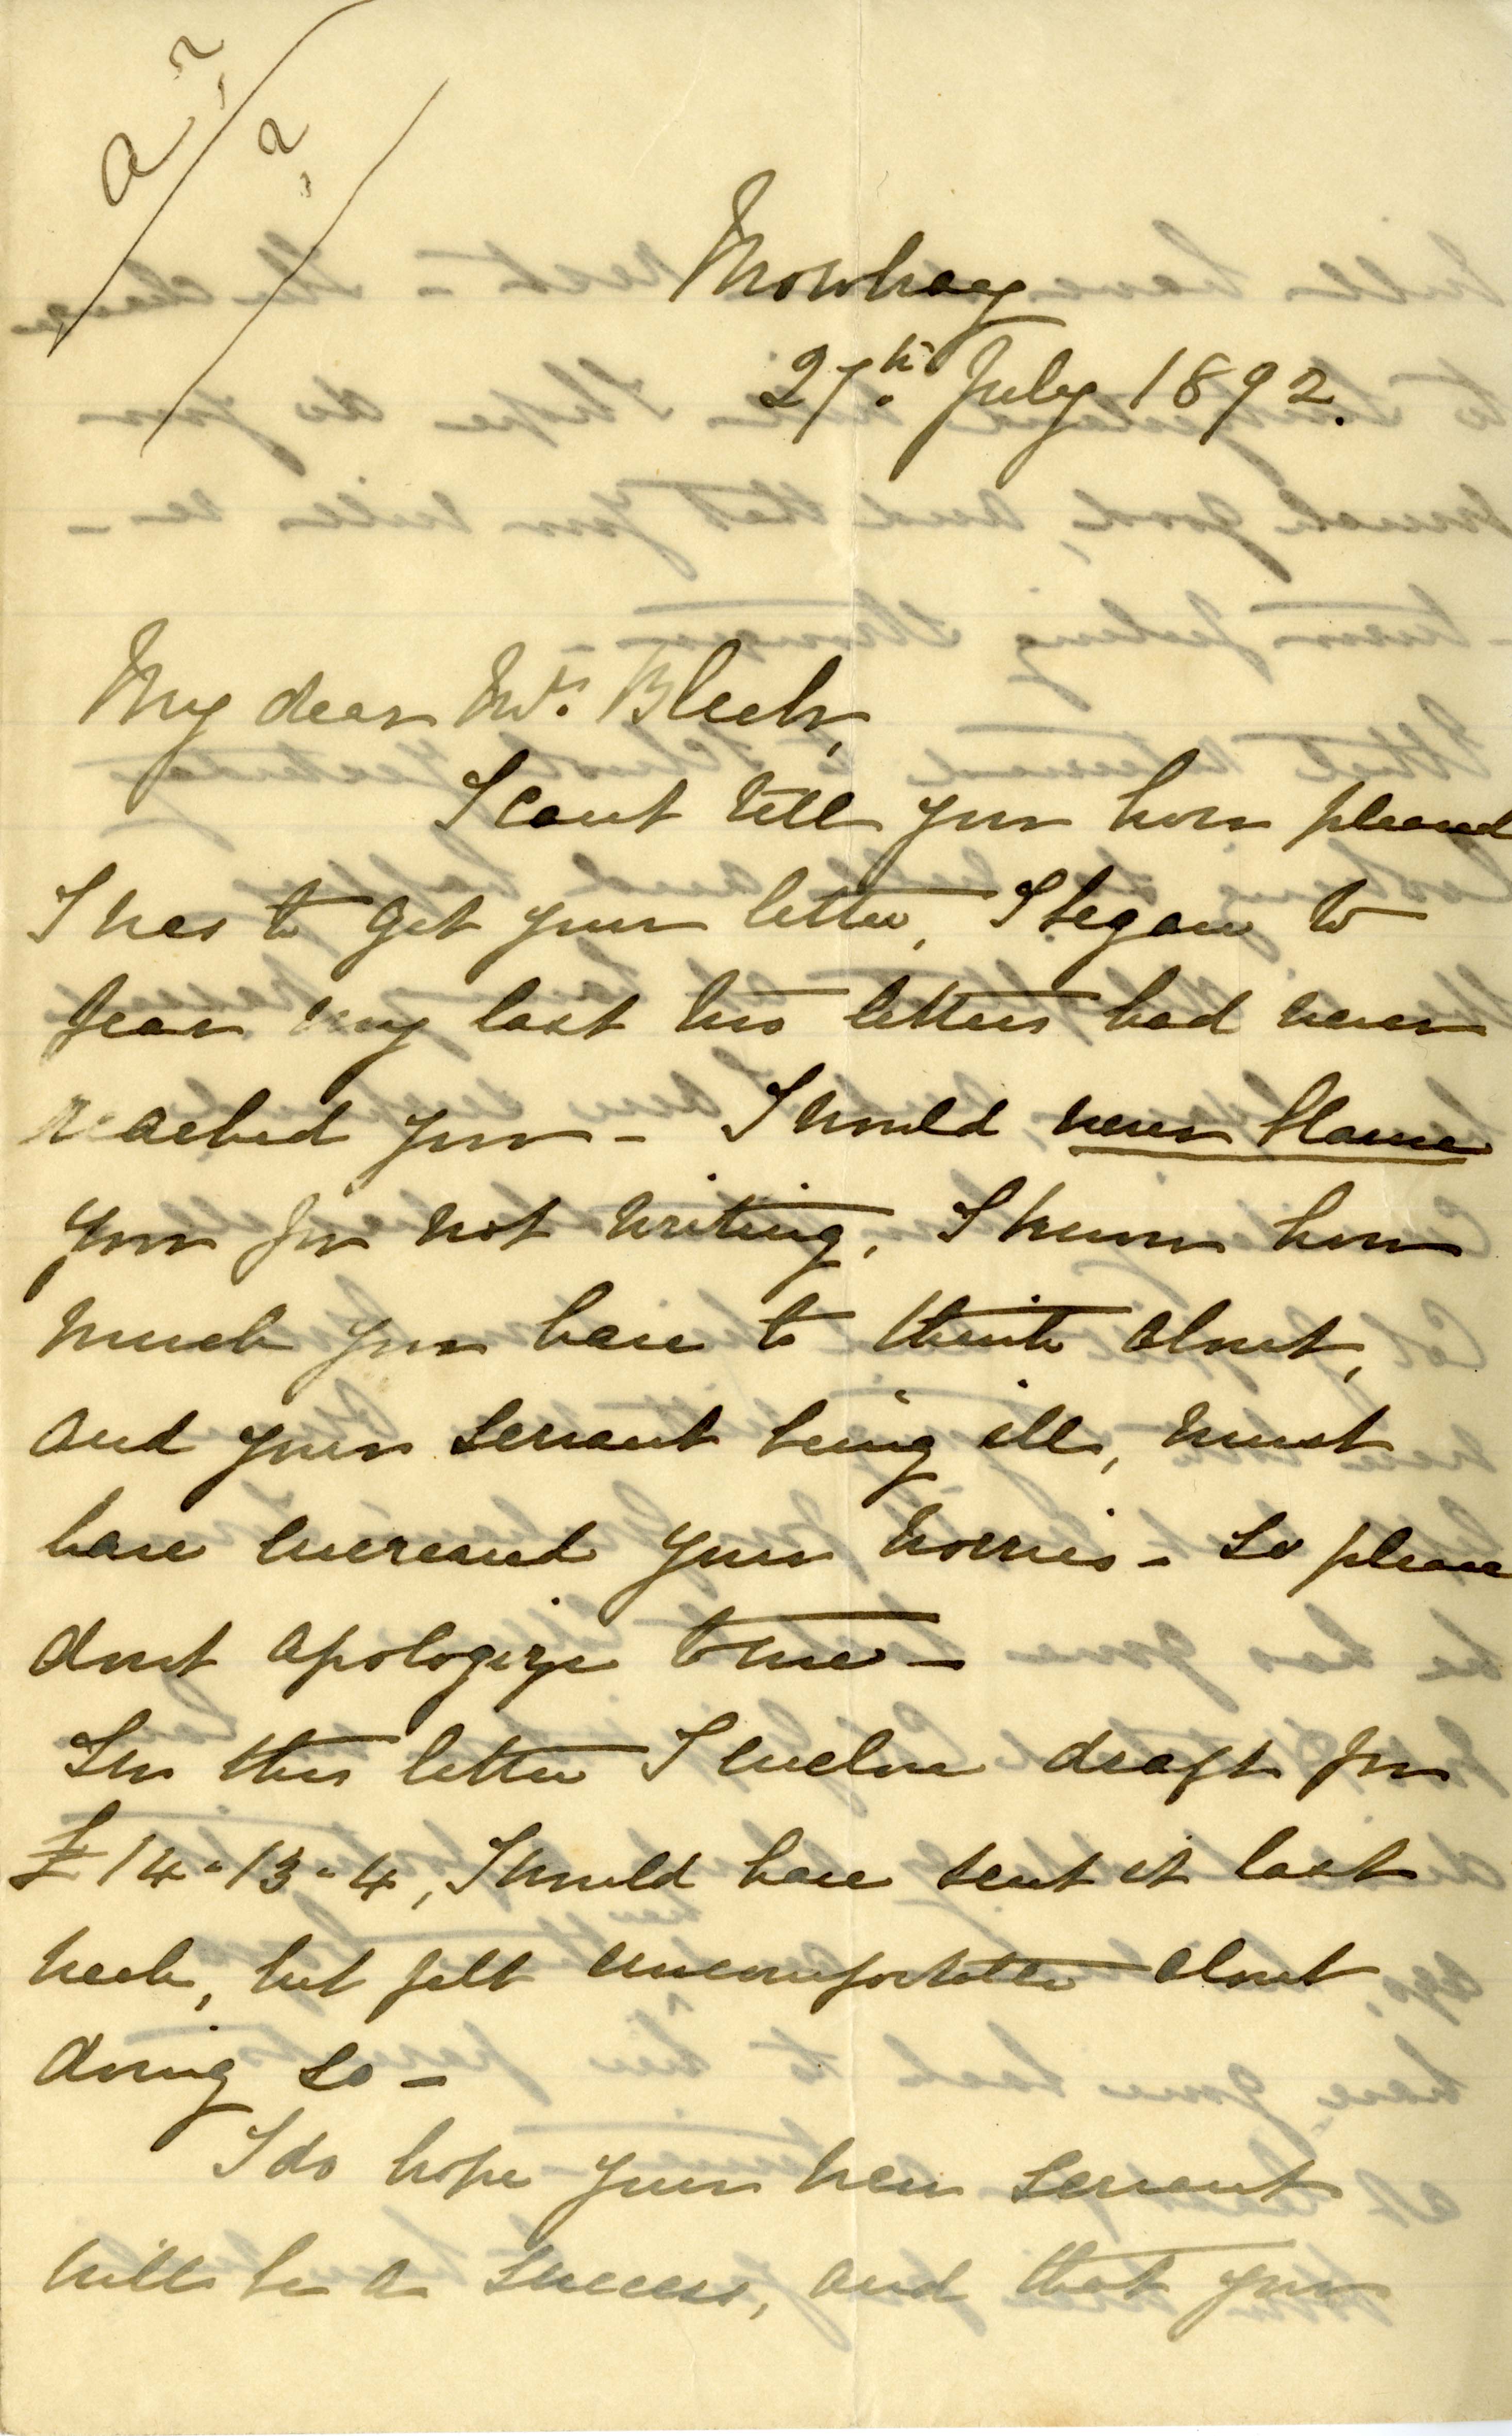 Mowbray
27th July 1892.
My dear Mrs. Bleek,
I cant tell you how pleased
I was to get your letter, I began to
fear my last two letters had never
reached you - I would never blame
you for not writing, I know how
much you have to think about,
and your servant being ill, must
have increased your worries - So please
dont apologize to me -
In this letter I enclose draft for
£14-13-4, I would have sent it last
week, but felt uncomfortable about
doing so -
I do hope your new servant
will be a success, and that you